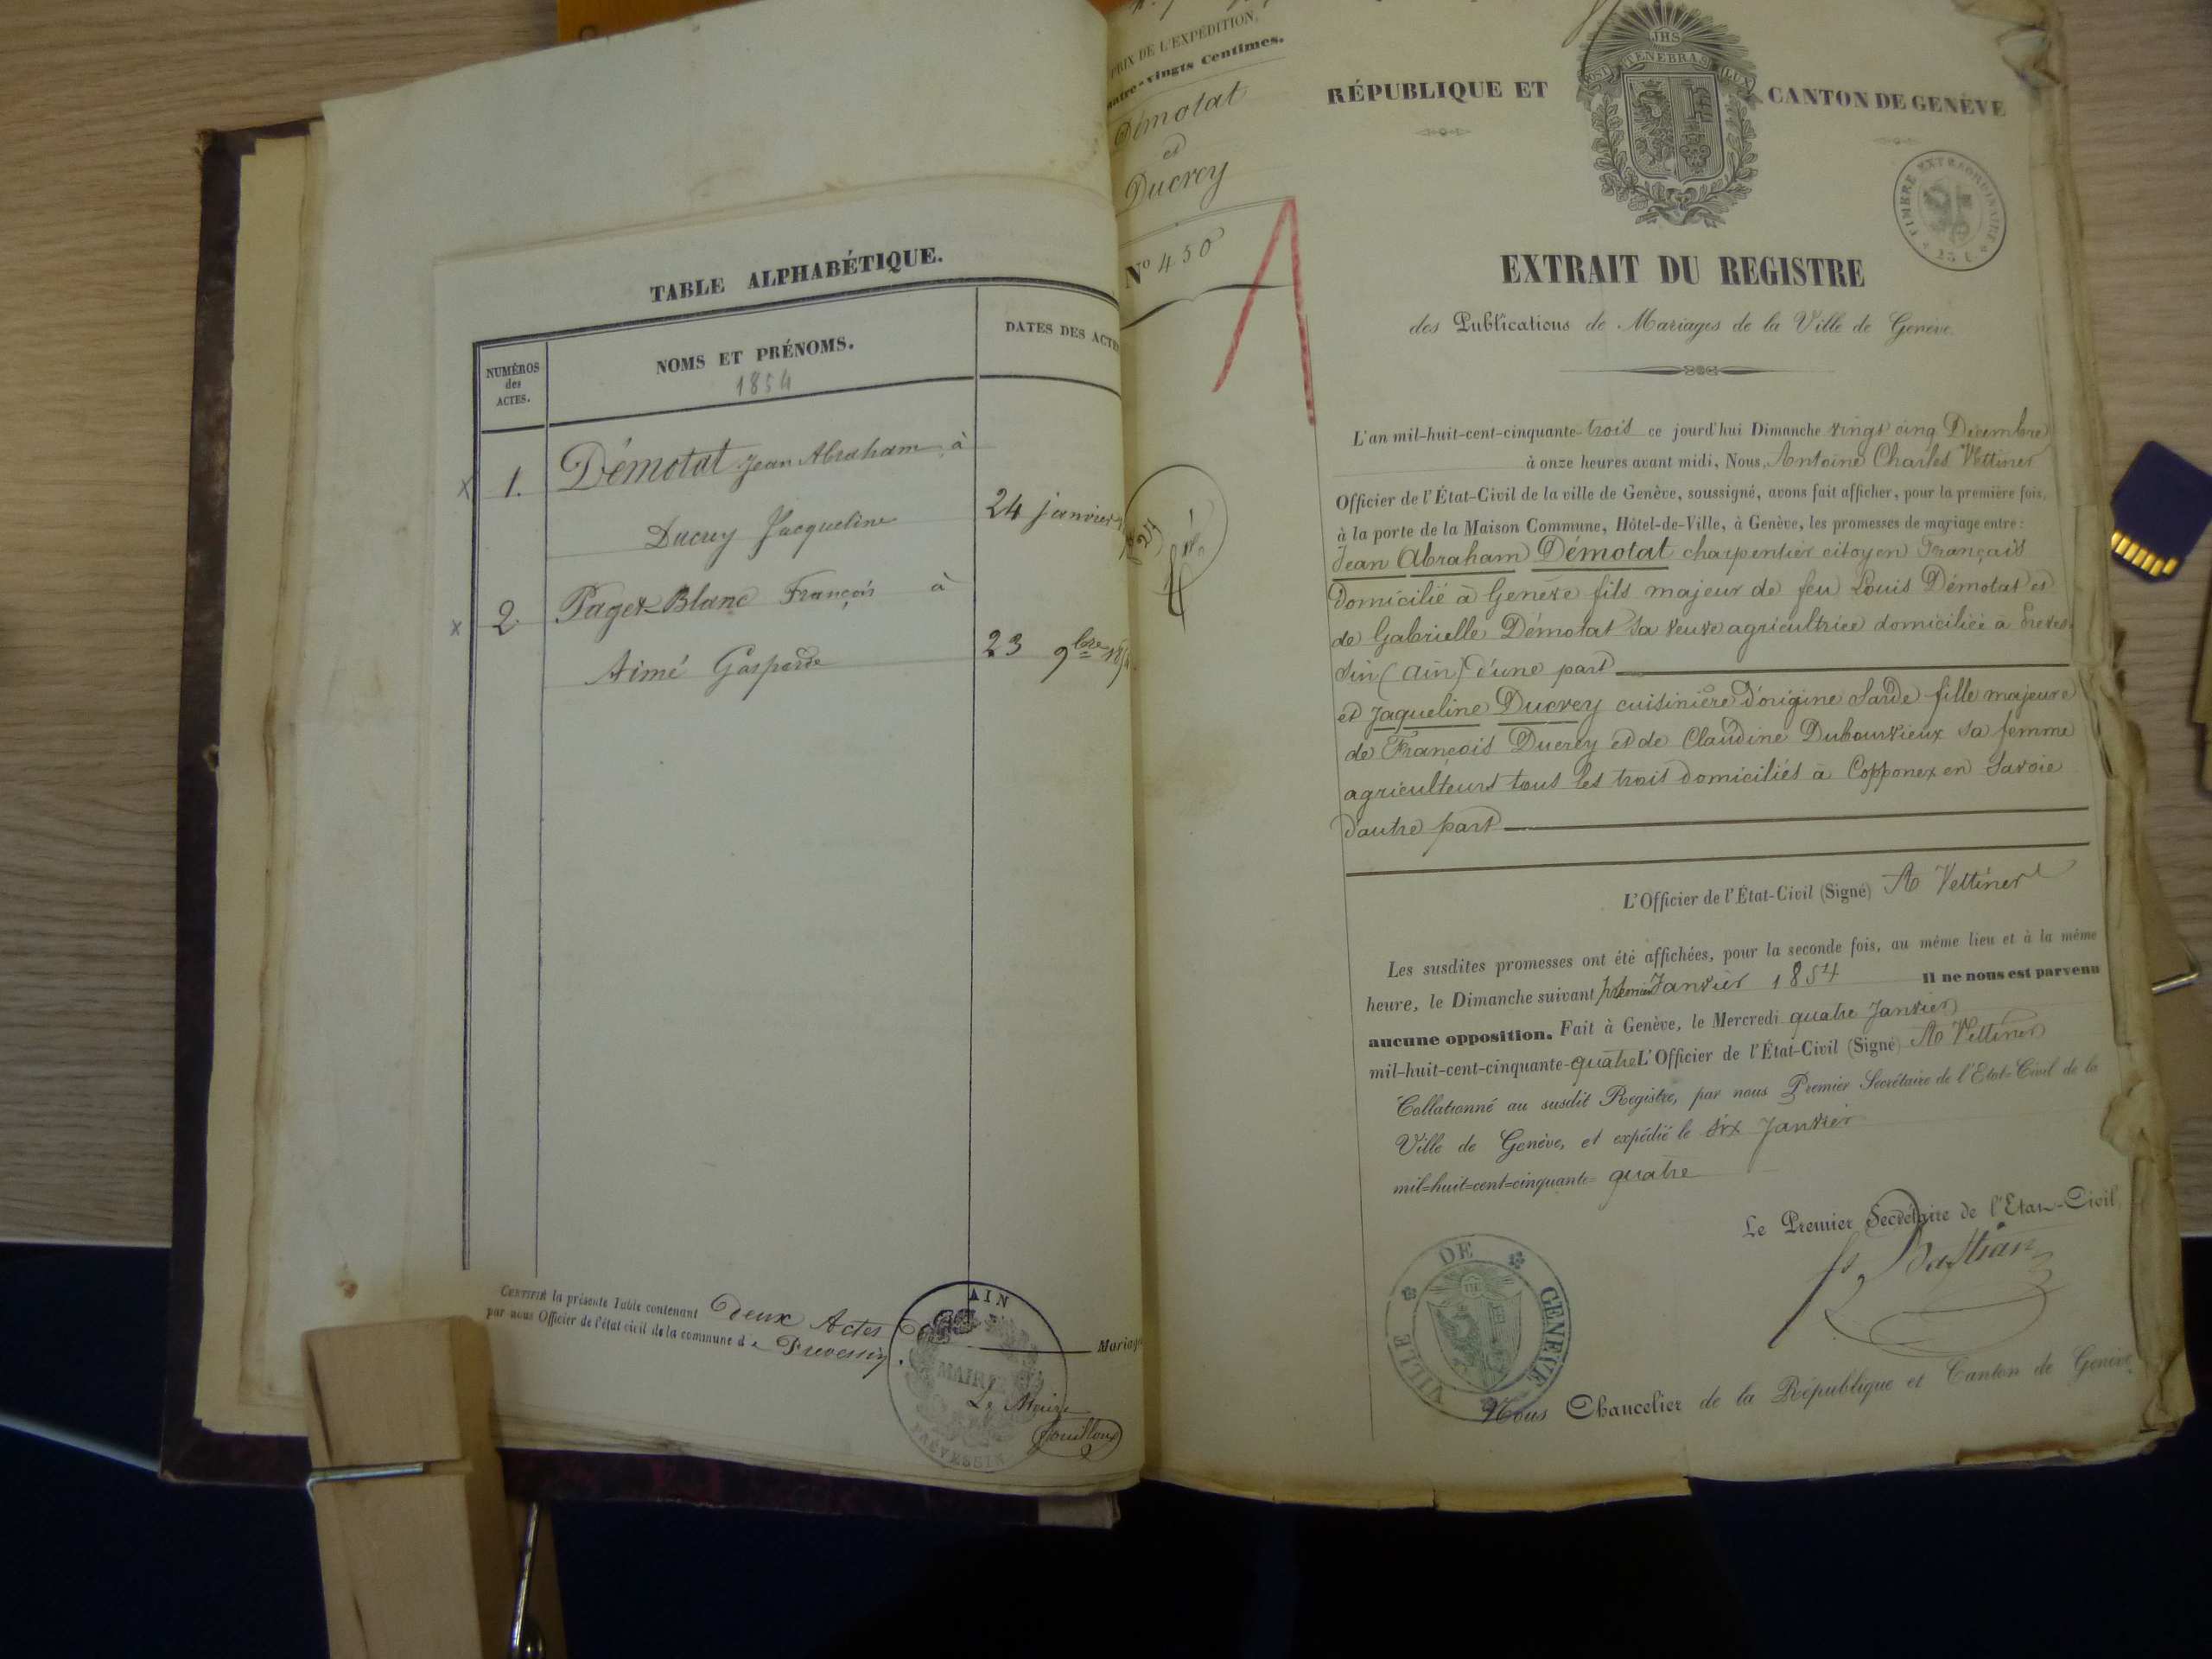 TABLE ALPHABÉTIQUE.
NUMÉROS
des
ACTES.
NOMS ET PRÉNOMS.
1854
DATES DES ACTES
x 1. Démotat Jean Abraham à
Ducrey Jacqueline
24 janvier
x 2 Paget-Blanc François à
Aimé Gasparde
23 9bre
CERTIFIÉ la présente Table contenant deux Actes
par nous Officier de l'état civil de la commune de Prevessin.
Mariage
AIN
MAIRIE
PRÉVESSIN
Le Maire
PRIX DE L'EXPÉDITION,
quatre-vingts Centimes.
Démotat
et
Ducrey
No 450
RÉPUBLIQUE ET CANTON DE GENÈVE
JHS
POST TENEBRAS LUX
TIMBRE EXTRAORDINAIRE
25 C
EXTRAIT DU REGISTRE
des Publications de Mariages de la Ville de Genève.
L'an mil-huit-cent-cinquante-trois ce jourd'hui Dimanche vingt cinq Décembre
à onze heures avant midi, Nous, Antoine Charles Vettiner
Officier de l'État-Civil de la ville de Genève, soussigné, avons fait afficher, pour la première fois,
à la porte de la Maison Commune, Hôtel-de-Ville, à Genève, les promesses de mariage entre:
Jean Abraham Démotat charpentier citoyen Français
domicilié à Genève fils majeur de feu Louis Démotat et
de Gabrielle Démotat sa veuve agricultrice domiciliée à Preves-
sin (Ain) d'une part
et Jaqueline Ducrey cuisinière d'origine Sarde fille majeure
de François Ducrey et de Claudine Dubourvieux sa femme
agriculteurs tous les trois domiciliés à Copponex en Savoie
d'autre part
L'Officier de l'État-Civil (Signé) A Vettiner
Les susdites promesses ont été affichées, pour la seconde fois, au même lieu et à la même
heure, le Dimanche suivant premier Janvier 1854 Il ne nous est parvenu
aucune opposition. Fait à Genève, le Mercredi quatre Janvier
mil-huit-cent-cinquante-quatre L'Officier de l'État-Civil (Signé) A Vettiner
Collationné au susdit Registre, par nous Premier Secrétaire de l'Etat-Civil de la
Ville de Genève, et expédié le six Janvier
mil=huit=cent=cinquante= quatre
Le Premier Secrétaire de l'Etat-Civil,
Bastian
VILLE DE GENEVE
Nous Chancelier de la République et Canton de Genève